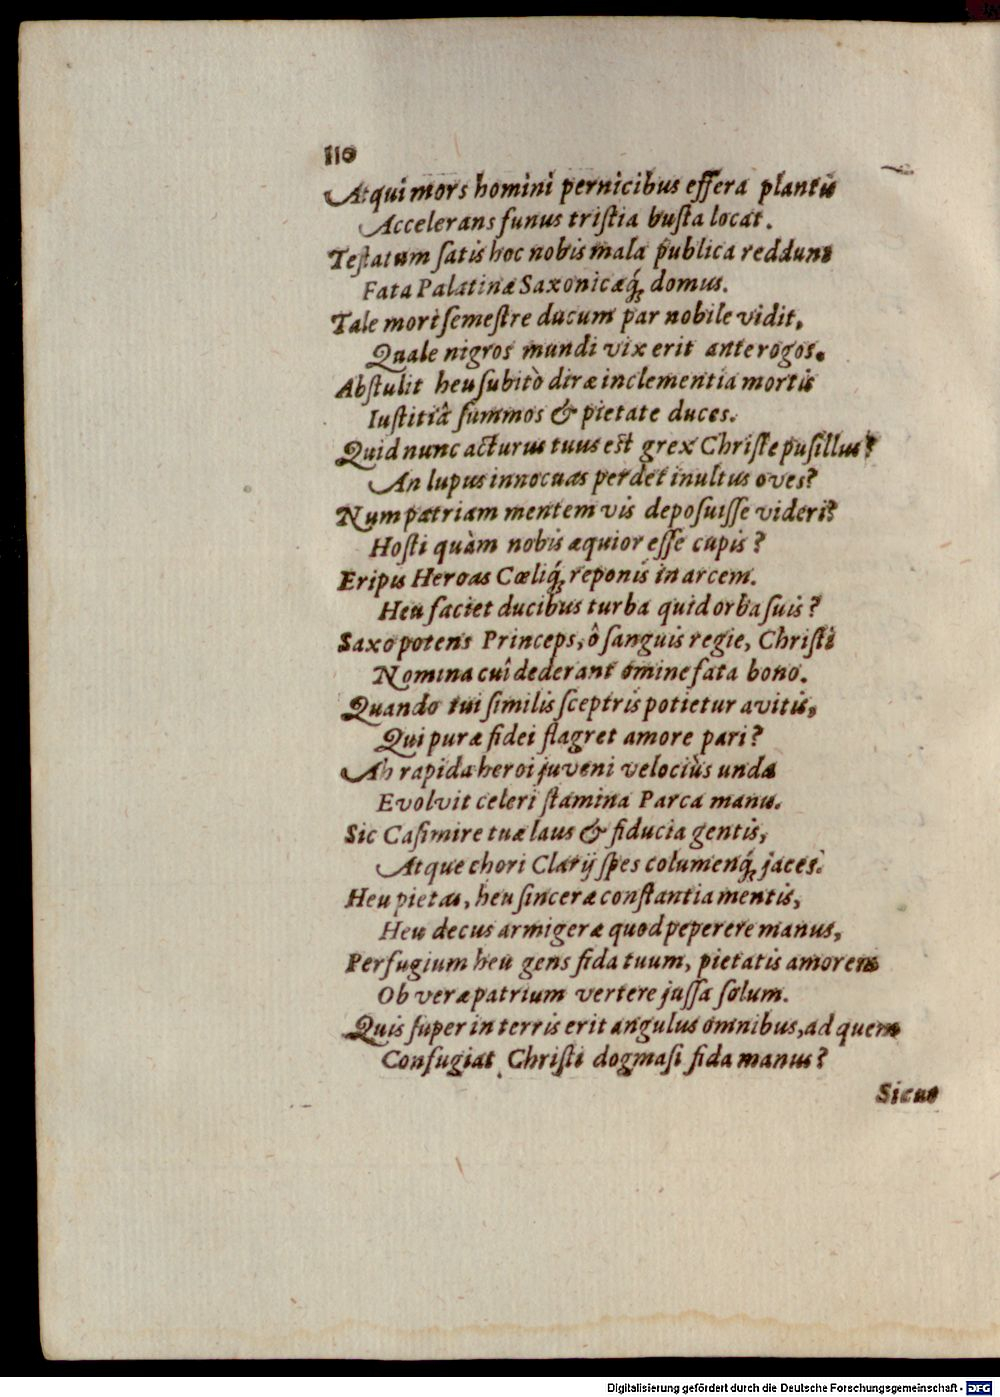 110
Atqui mors homini pernicibus effera plantis
Accelerans funus tristia busta locat.
Testatum satis hoc nobis mala publica reddunt
Fata Palatinæ Saxonicæq́; domus.
Tale mori semestre ducum par nobile vidit,
Quale nigros mundi vix erit ante rogos.
Abstulit heu subitò diræ inclementia mortis
Iustitiâ summos & pietate duces.
Quid nunc acturus tuus est grex Christe pusillus?
An lupus innocuas perdet inultus oves?
Num patriam mentem vis deposuisse videri?
Hosti quàm nobis æquior esse cupis?
Eripis Heroas Cœliq́; reponis in arcem.
Heu faciet ducibus turba quid orba suis?
Saxo potens Princeps, ô sanguis regie, Christi
Nomina cui dederant omine fata bono.
Quando tui similis sceptris potietur avitis,
Qui puræ fidei flagret amore pari?
Ah rapida heroi juveni velociùs unda
Evolvit celeri stamina Parca manu.
Sic Casimire tuæ laus & fiducia gentis,
Atque chori Clarij spes columenq́; jaces.
Heu pietas, heu sinceræ constantia mentis,
Heu decus armigeræ quod peperere manus,
Perfugium heu gens fida tuum, pietatis amorem
Ob veræ patrium vertere jussa solum.
Quis super in terris erit angulus omnibus, ad quem
Confugiat Christi dogmasi fida manus?
Sicut
Digitalisierung gefördert durch die Deutsche Forschungsgemeinschaft - DFG